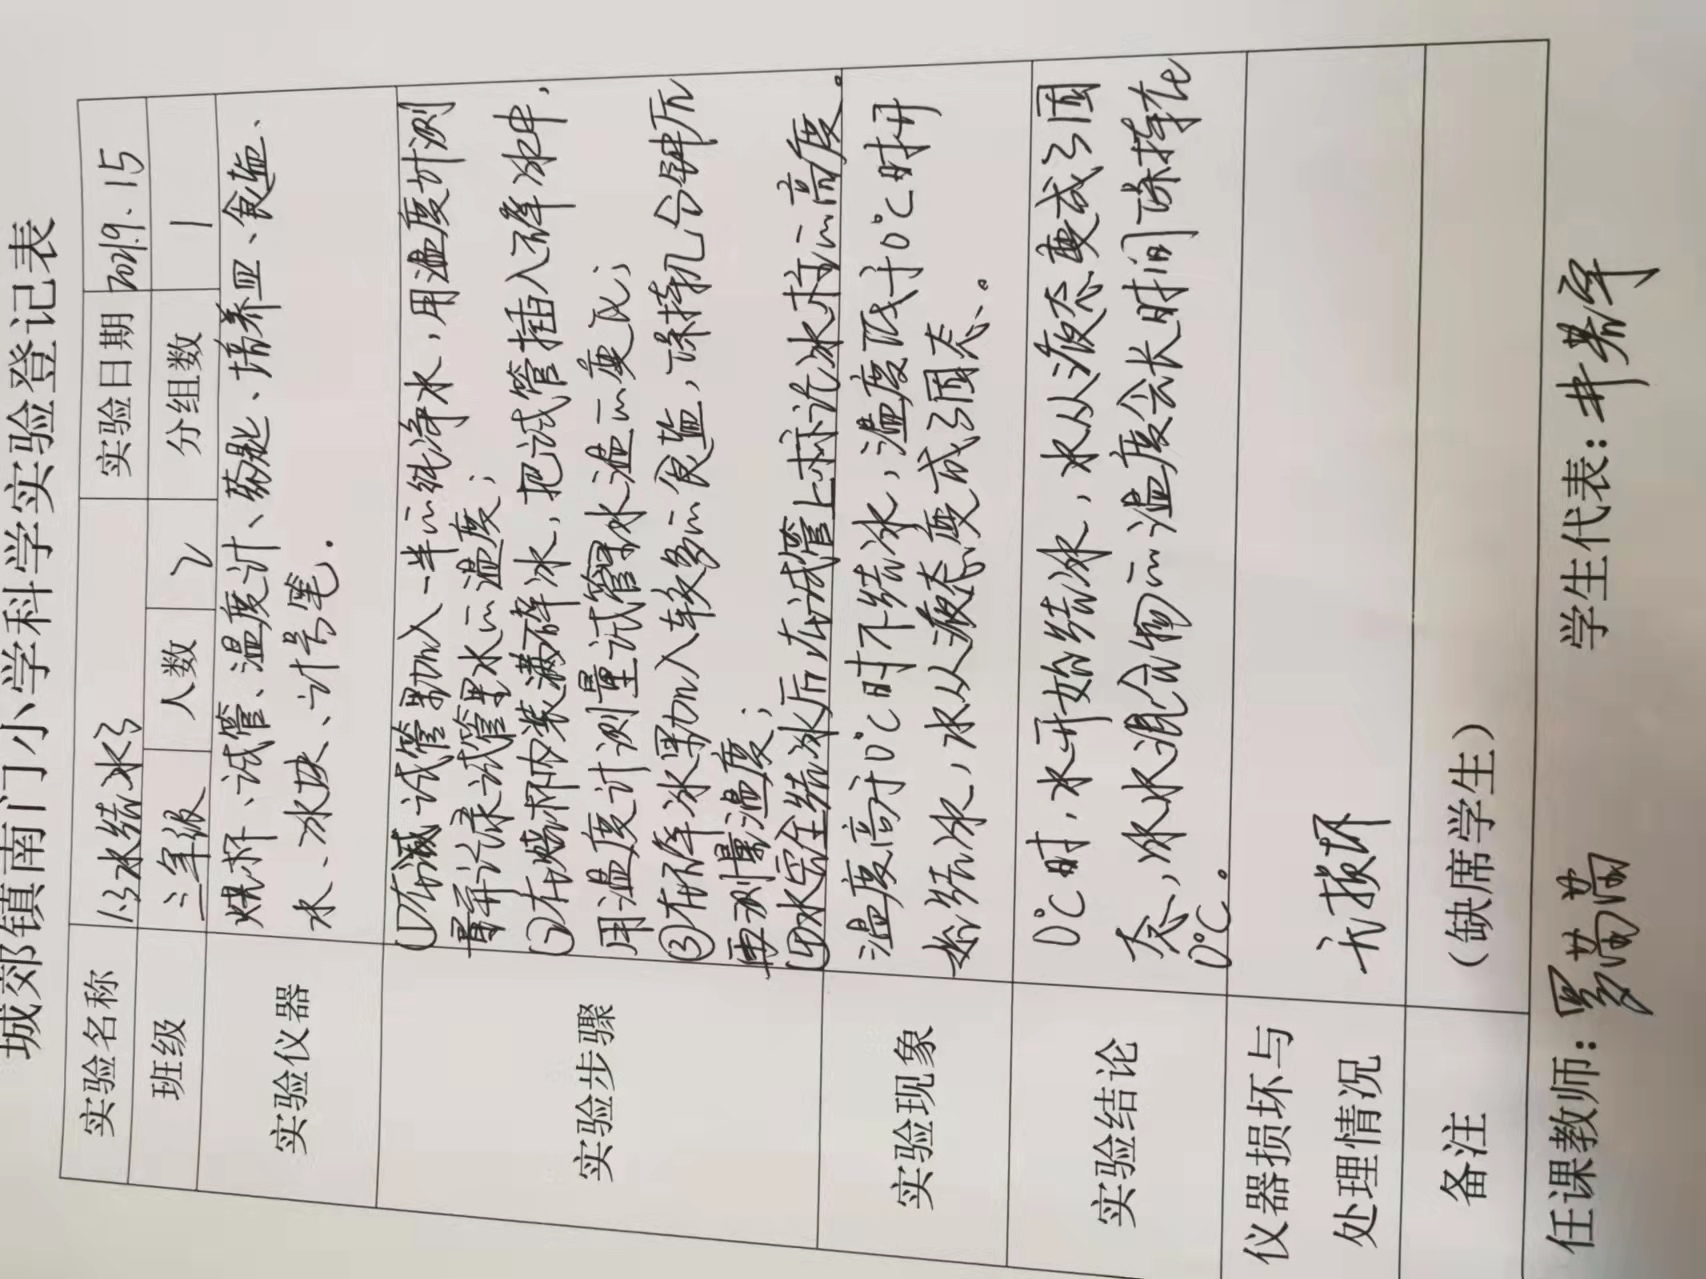 城郊镇南门小学科学实验登记表
实验名称 1.3水结冰了 实验日期 2021.9.15
班级 三年级 人数 2 分组数 1
实验仪器 烧杯、试管、温度计、药匙、培养皿、食盐、
水、冰块、计号笔.
实验步骤
①在试管里加入一半的纯净水,用温度计测
量并记录试管里水的温度;
②在烧杯内装满碎冰,把试管插入碎冰中,
用温度计测量试管里水温的变化;
③在碎冰里加入较多的食盐,保持几分钟后
再测量温度;
④水完全结冰后在试管上标记冰柱的高度.
实验现象
温度高于0℃时不结冰,温度低于0℃时开
始结冰,水从液态变成了固态。
实验结论
0℃时,水开始结冰,水从液态变成了固
态,冰水混合物的温度会长时间保持在
0℃.
仪器损坏与
处理情况
无损坏
备注 (缺席学生)
任课教师: 学生代表: